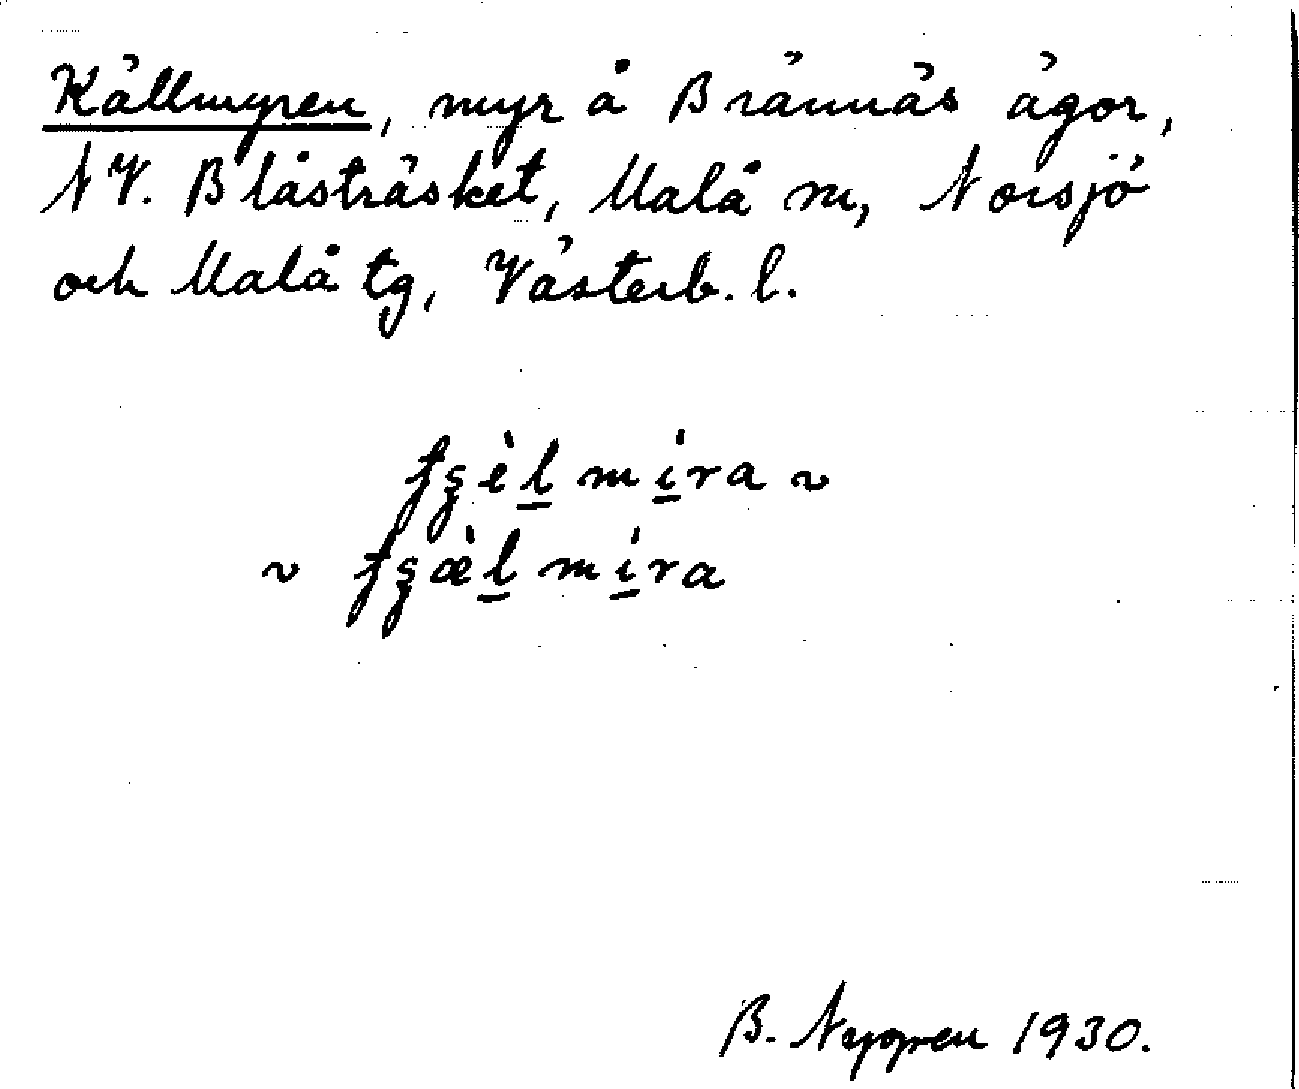 Källmyren, myr å Brännäs ägor,
NV. Blåsträsket, Malå sn, Norsjö
och Malå tg, Västerb. l.
fʂèl̲ mi̲ra ~
~ fʂæ̀l̲ mi̲ra
B. Nygren 1930.